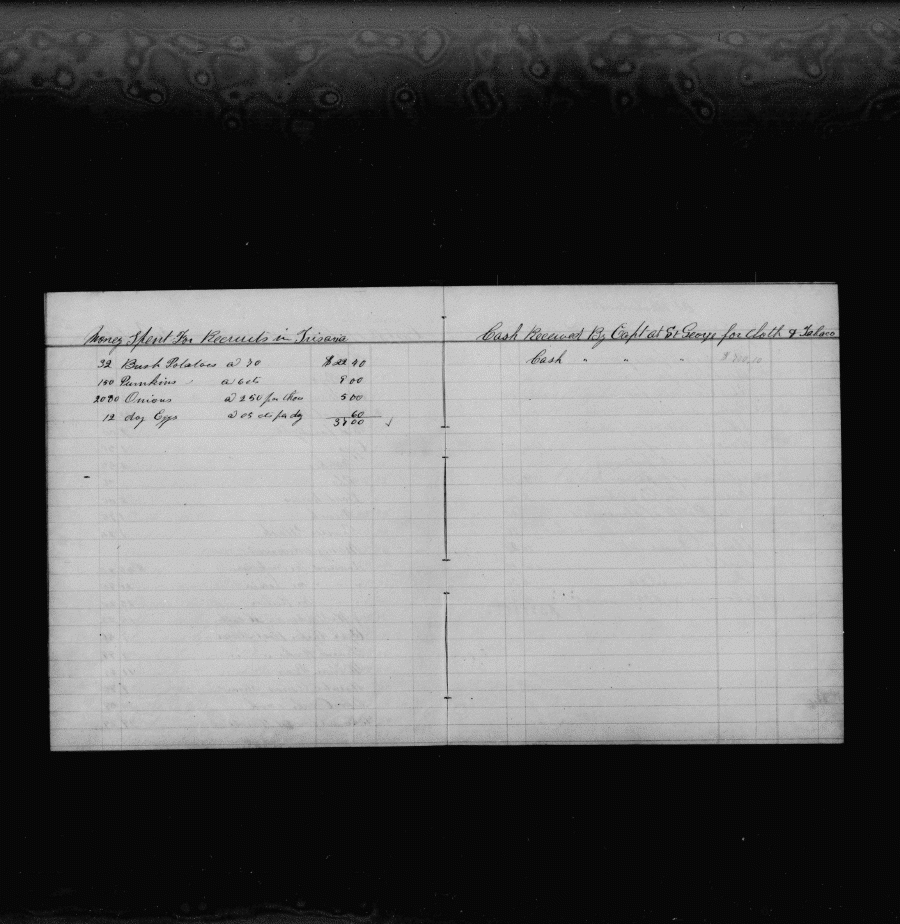 Money Spent For Recruits in Trisana
32 Bush Potatoes a 70 $22 40
150 Pumkins a 6 cts 9 00
2000 Onions a 2 50 per thou 5 00
12 doz Eggs a 05 cts per dz 60
37 00
Cash Received By Capt at St George for Cloth & Tabaco
Cash " " "